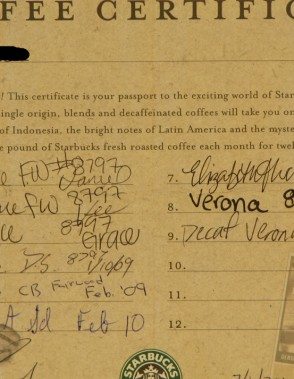 FEE CERTIFIC
! This certificate is your passport to the exciting world of Star
ingle origin, blends and decaffeinated coffees will take you on
of Indonesia, the bright notes of Latin America and the myste
e pound of Starbucks fresh roasted coffee each month for twel
FW #8797
7.
FW 8797
8. Verona 8
8797
Grace
9. Decaf Veron
D.S. 8797 1/10/09
10.
CB Feb '09
11.
Feb 10
12.
STARBUCKS